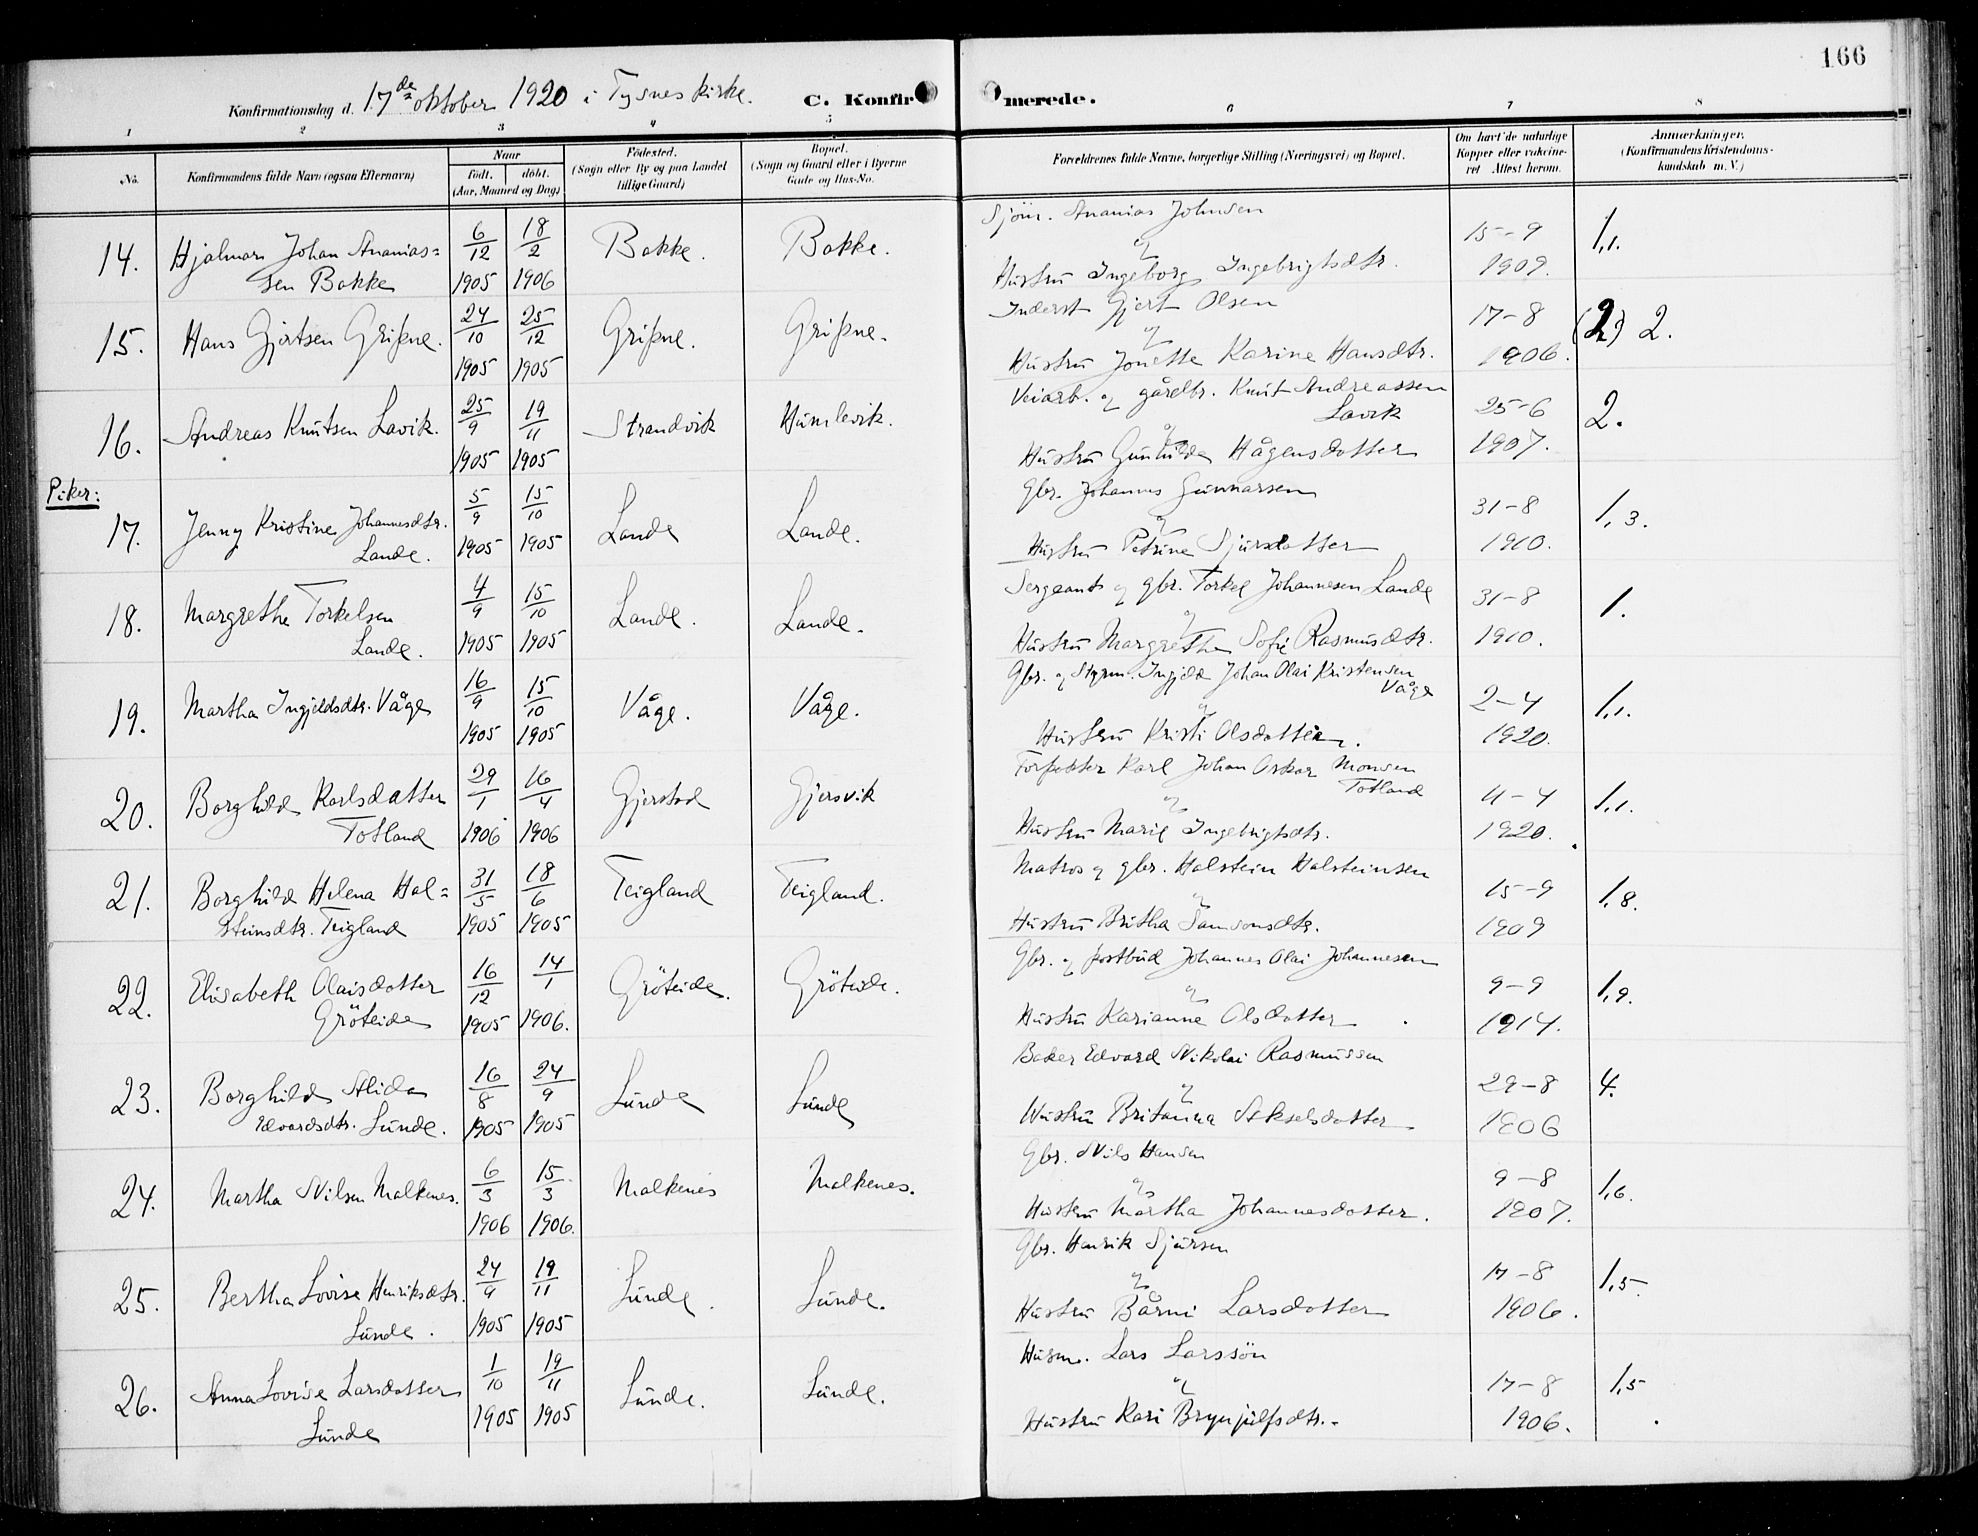 166
Konfirmationsdag d. 17de oktober 1920 i Tysnes kirke. C. Konfirmerede.
1 2 3 4 5 6 7 8
No. Konfirmandens fulde Navn (ogsaa Efternavn) Naar født. døbt. (Aar, Maaned og Dag) Fødested. (Sogn eller By og paa Landet tillige Gaard) Bopæl. (Sogn og Gaard eller i Byerne Gade og Hus-No. Forældrenes fulde Navne, borgerlige Stilling (Næringsvei) og Bopæl. Om havt de naturlige Kopper eller vakcineret Attest herom. Anmærkninger. (Konfirmandens Kristendomskundskab m. V.)
14. Hjalmar Johan Ananias= 6/12 18/2 Bakke. Bakke. Sjöm. Ananias Johnsen 15-9 1,1.
sen Bakke 1905 1906 og Hustru Ingeborg Ingebrigtsdtr. 1909.
15. Hans Gjertsen Griskne. 24/10 25/12 Inderst Gjert Olsen 17-8 (2) 2.
1905 1905 og Hustru Jonette Karine Hansdtr. 1906.
16. Andreas Knutsen Lavik. 25/9 19/11 Strandvik Humlevik. Veiarb. og gårdbr. Knut Andreassen Lavik 25-6 2.
1905 1905 og Hustru Gunhilda Hågensdatter 1907.
Piker:
17. Jenny Kristine Johannesdtr. 5/9 15/10 Lande Lande. Gbr. Johannes Gunnarsen 31-8 1,3.
Lande. 1905 1905 og Hustru Petrine Sjursdatter 1910.
18. Margrethe Torkelsen 4/9 15/10 Lande. Lande. Sergeant og gbr. Torkel Johannesen Lande 31-8 1.
Lande. 1905 1905 og Hustru Margrethe Sofie Rasmusdtr. 1910.
19. Martha Ingjeldsdtr. Våge 16/9 15/10 Våge. Våge. Gbr. og Styrm. Ingjeld Johan Olai Kristensen Våge 2-4 1,1.
1905 1905 og Hustru Kristi Olsdatter. 1920.
20. Borghild Karlsdatter 29/1 16/4 Gjerstad Gjersvik Forpakter Karl Johan Oskar Monsen Totland 11-4 1,1.
Totland 1906 1906 og Hustru Marie Ingebrigtsdtr. 1920.
21. Borghild Helena Hal= 31/5 18/6 Teigland Teigland. Matros og gbr. Halstein Halsteinsen 15-9 1,8.
steinsdtr. Teigland 1905 1905 og Hustru Britha Samsonsdtr. 1909
22. Elisabeth Olaisdatter 16/12 14/1 Gröteide. Gröteide. Gbr. og postbud Johannes Olai Johannesen 9-9 1,9.
Gröteide 1905 1906. og Hustru Karianne Olsdatter 1914.
23. Borghild Alida 16/8 24/9 Lunde Lunde Bader Edvard Nikolai Rasmussen 29-8 4.
Edvardsdtr. Lunde. 1905 1905 og Hustru Britanna Akselsdatter 1906
24. Martha Nilsen Malkenes. 6/3 15/3 Malkenes Malkenes. Gbr. Nils Hansen 9-8 1,6.
1906 1906. og Hustru Martha Johannesdatter. 1907.
25. Bertha Lovise Henriksdtr. 24/9 19/11 Lunde. Lunde. Gbr. Henrik Sjursen 17-8 1,5.
Lunde. 1905 1905 og Hustru Bårni Larsdatter 1906.
26. Anna Lovise Larsdatter 1/10 19/11 Lunde. Lunde. Husm. Lars Larssön 17-8 1,5
Lunde 1905 1905 og Hustru Kari Brynjulfsdtr. 1906.